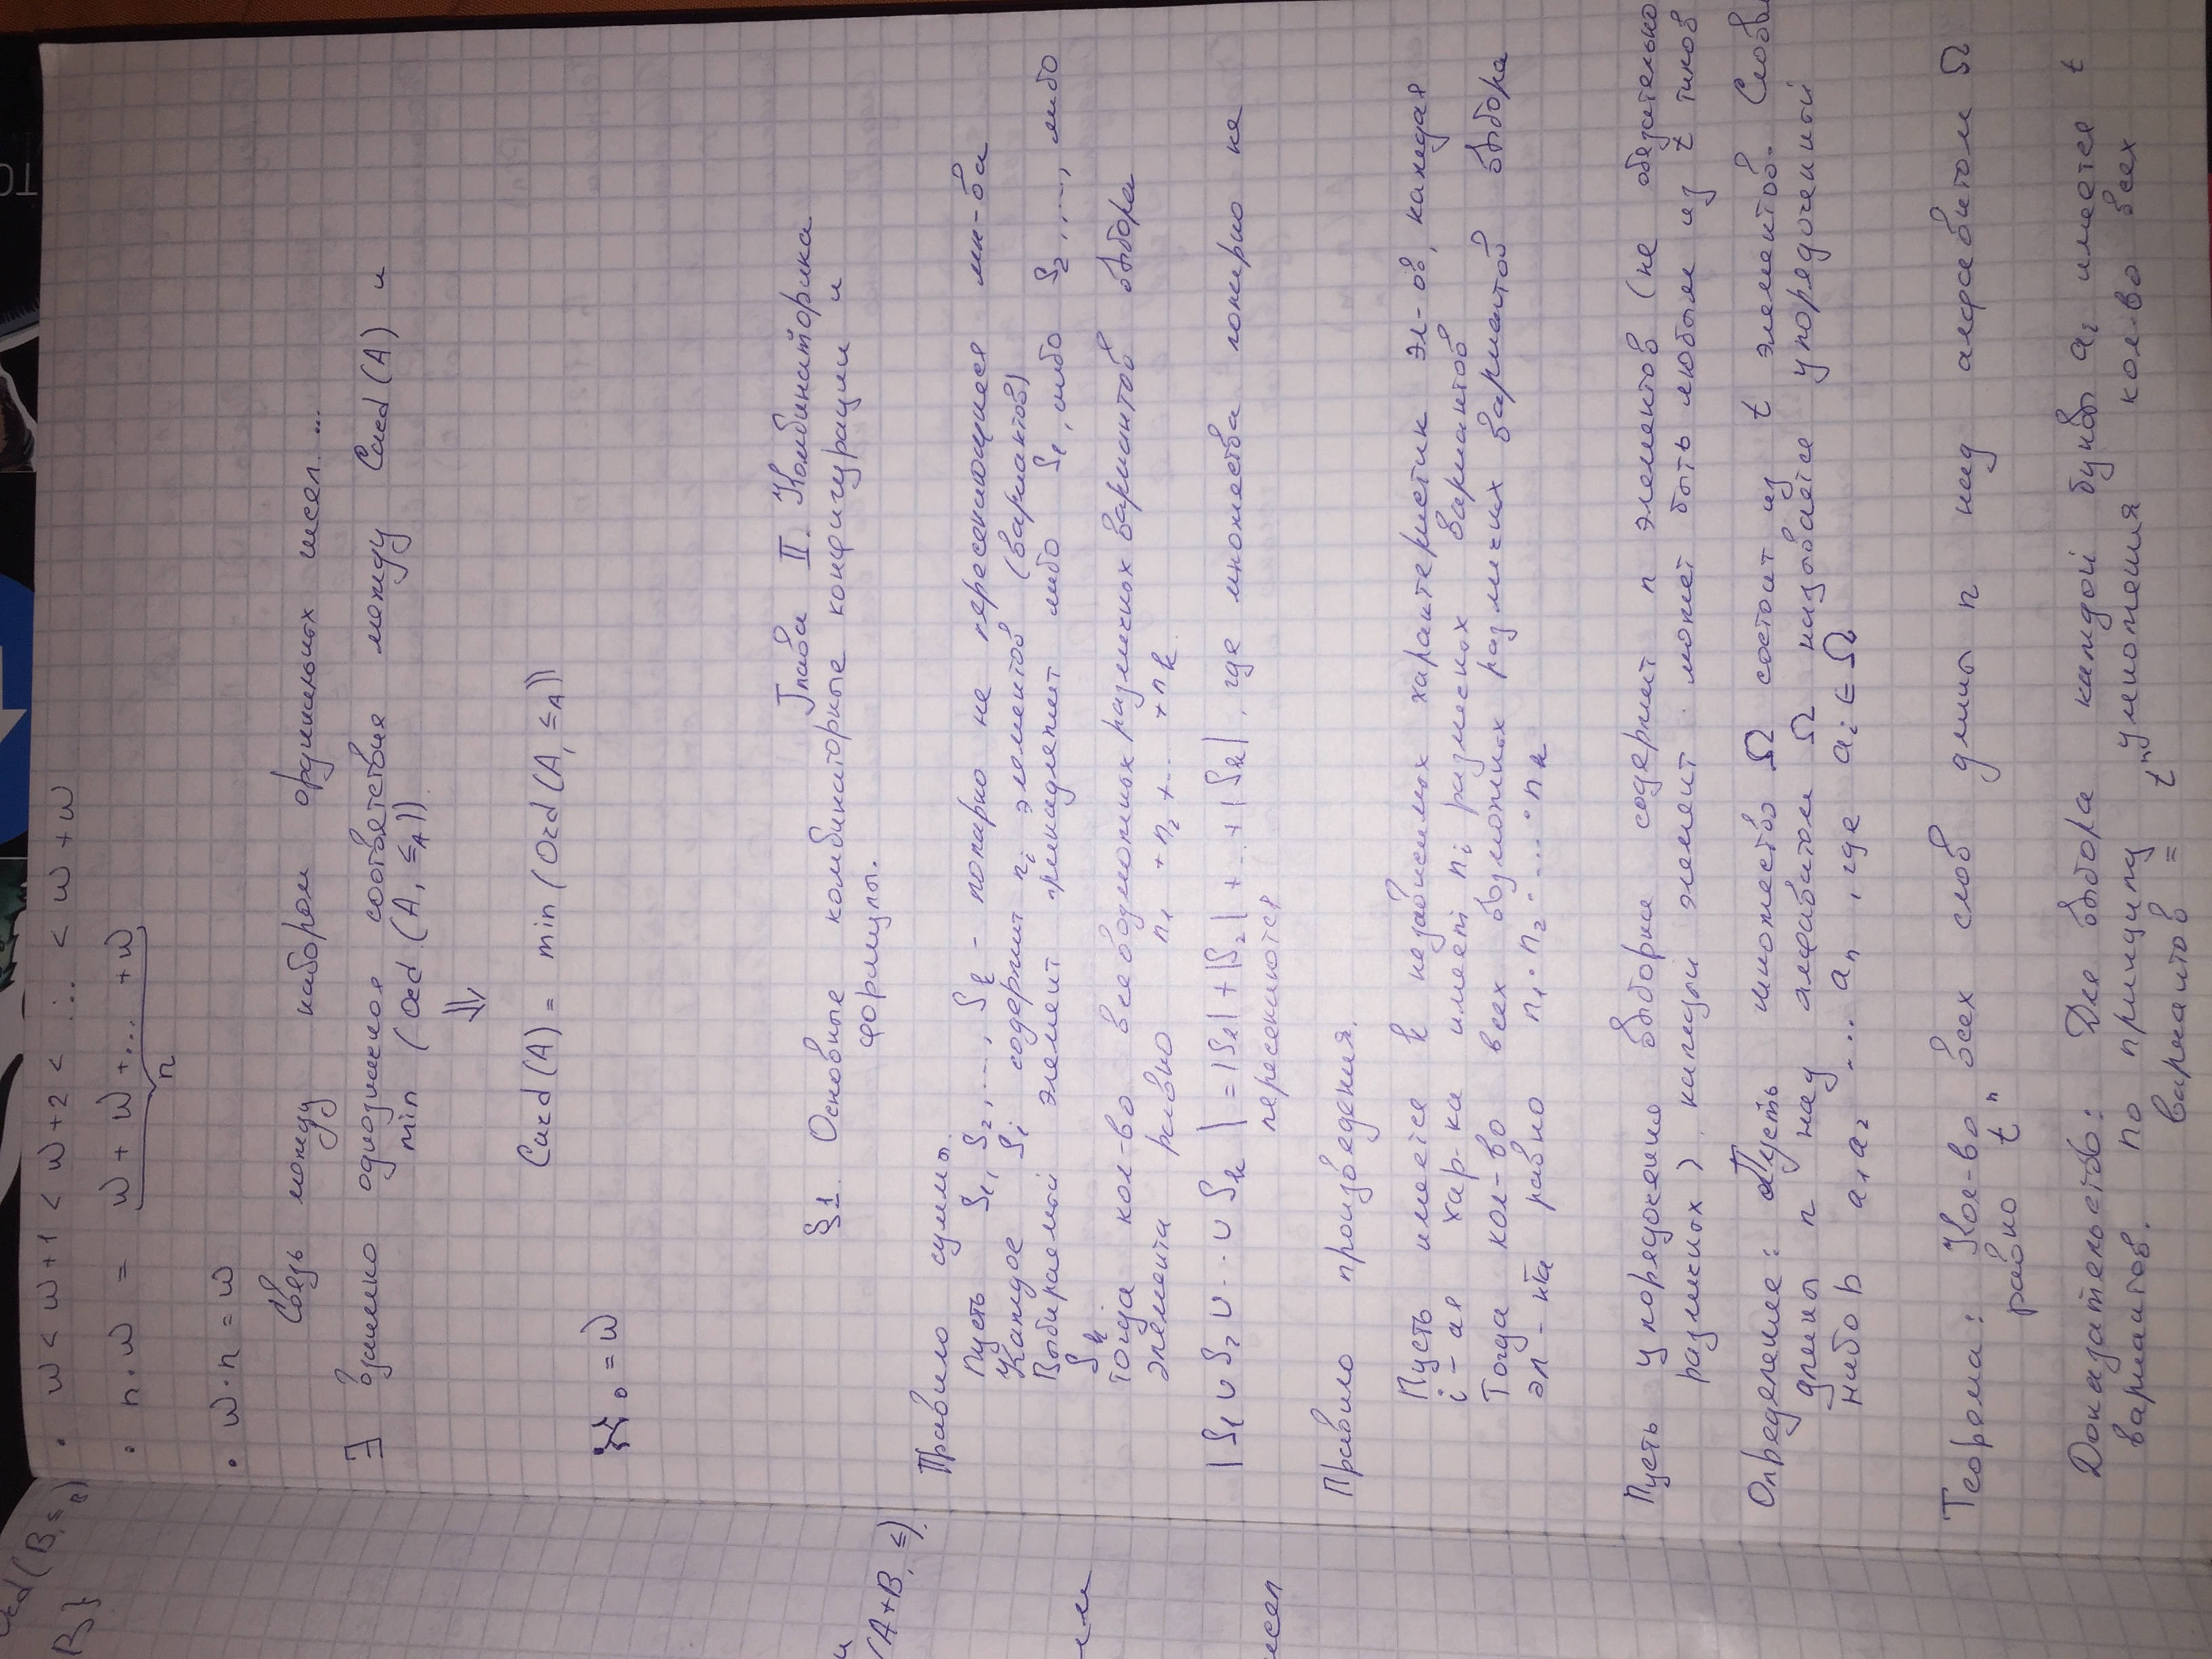 Ord(B, ≤B)
B}
• w < w+1 < w+2 < ... < w+w
• n·w = w + w + ... + w
n
• w·n = w
Связь между набором ординальных чисел. ...
∃ взаимно однозначное соответствие между Card(A) и
min (Ord (A, ≤A))
⇓
Card(A) = min(Ord(A, ≤A))
ℵ0 = w
Глава II. Комбинаторика
§1. Основные комбинаторные конфигурации и
формулы.
и
(A+B, ≤).
Правило суммы.
Пусть S1, S2, ..., Sk - попарно не пересекающиеся мн-ва
Каждое Si содержит ni элементов (вариантов)
Выбираемый элемент принадлежит либо S1, либо S2, ..., либо
Sk.
Тогда кол-во всевозможных различных вариантов выбора
элемента равно n1 + n2 + ... + nk.
|S1 ∪ S2 ∪ ... ∪ Sk| = |S1| + |S2| + ... + |Sk|, где множества попарно не
пересекаются
исел
Правило произведения.
Пусть имеется k независимых характеристик эл-ов, каждая
i-ая хар-ка имеет ni различных вариантов
Тогда кол-во всех возможных различных вариантов выбора
эл-нта равно n1·n2·...·nk
Пусть упорядочения выборка содержит n элементов (не обязательно
различных), каждый элемент может быть любым из t типов
Определение: Пусть множество Ω состоит из t элементов. Слово
длины n над алфавитом Ω называется упорядоченный
набор a1a2 ... an, где ai ∈ Ω
Теорема: Кол-во всех слов длины n над алфавитом Ω
равно t^n
Доказательство: Для выбора каждой буквы ai имеется t
вариантов. По принципу умножения кол-во всех
вариантов = t^n